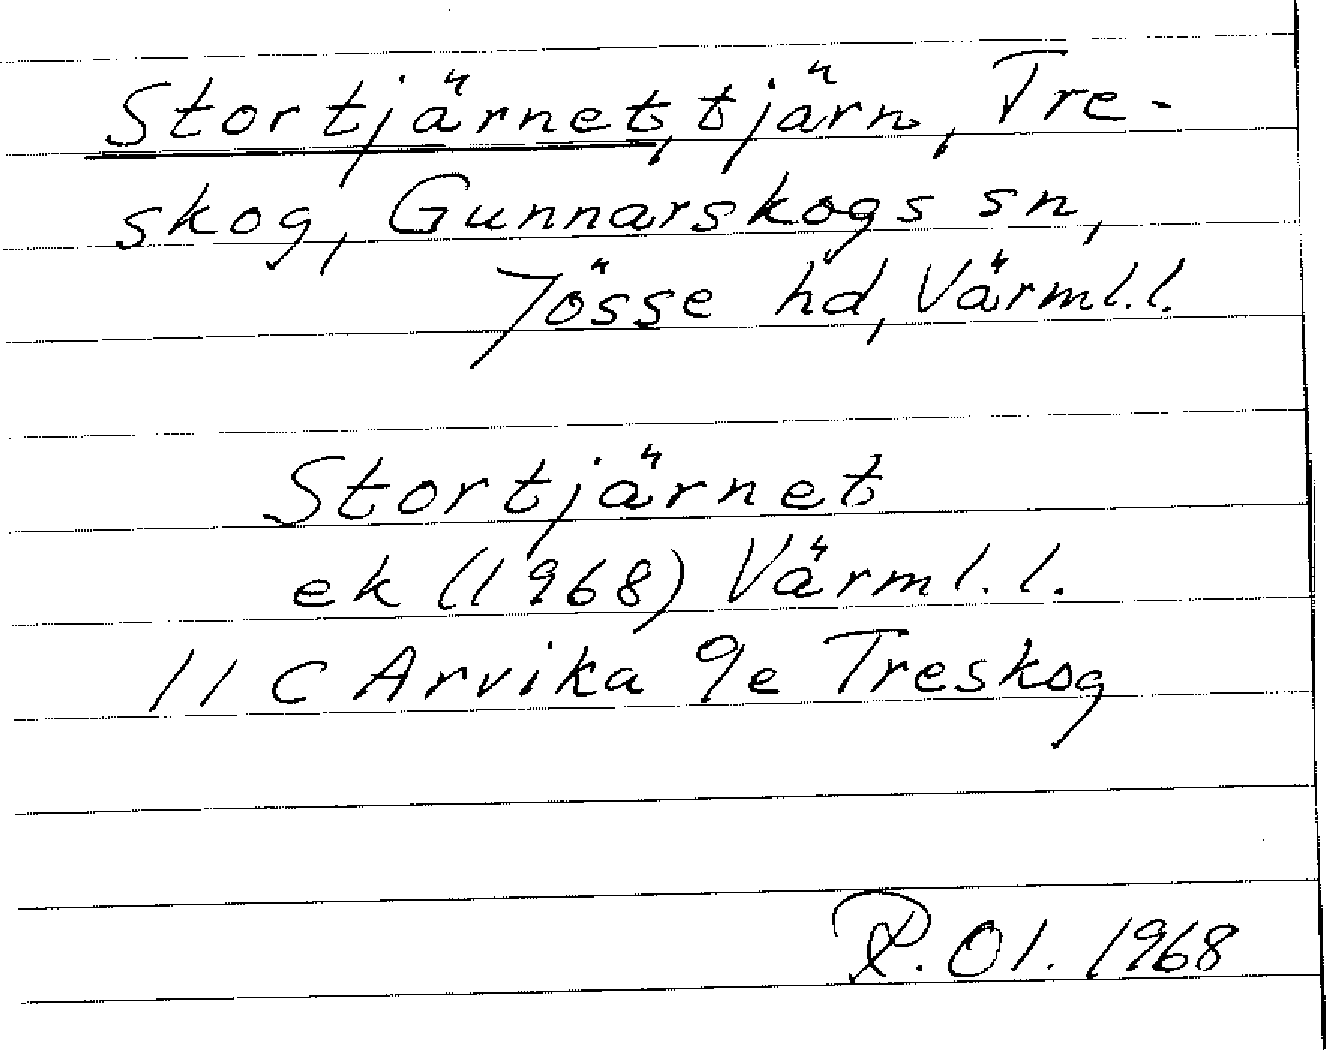 Stortjärnet, tjärn, Tre-
skog, Gunnarskogs sn,
Jösse hd, Värml.l.
Stortjärnet
ek (1968) Värml.l.
11 C Arvika 9e Treskog
R.Ol. 1968